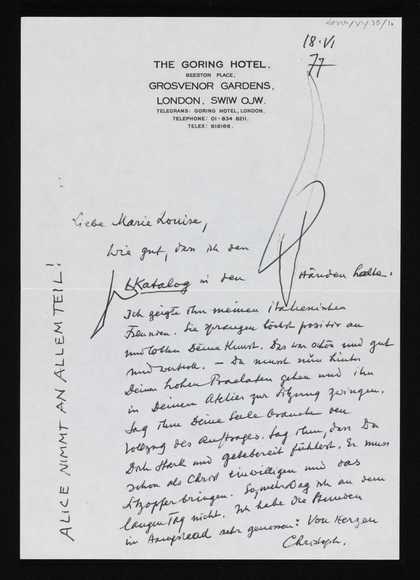 18·VI
77
THE GORING HOTEL,
BEESTON PLACE,
GROSVENOR GARDENS,
LONDON, SW1W OJW.
TELEGRAMS: GORING HOTEL, LONDON.
TELEPHONE: 01-834 8211.
TELEX: 919166.
Liebe Marie Louise,
Wie gut, dass ich den
Katalog in den Händen halte.
Ich zeigte ihn meinen italienischen
Freunden. Sie sprangen höchst positiv an
und lobten Deine Kunst. Das war schön und gut
und – Du musst nun hinter
Deinen hohen Praelaten gehen und ihn
in Deinem Atelier zur Sitzung zwingen.
Sag ihm Deine Seele brauche den
Vollzug des Auftrages. Sag ihm, dass Du
Dich stark und gebebereit fühlst. Er muss
schon als Christ einwilligen und das
Sitzopfer bringen. Sag ich an dem
langen Tag nicht. Ich habe die Stunden
in Hampstead sehr genossen: Von Herzen
Christoph.
ALICE NIMMT AN ALLEM TEIL!